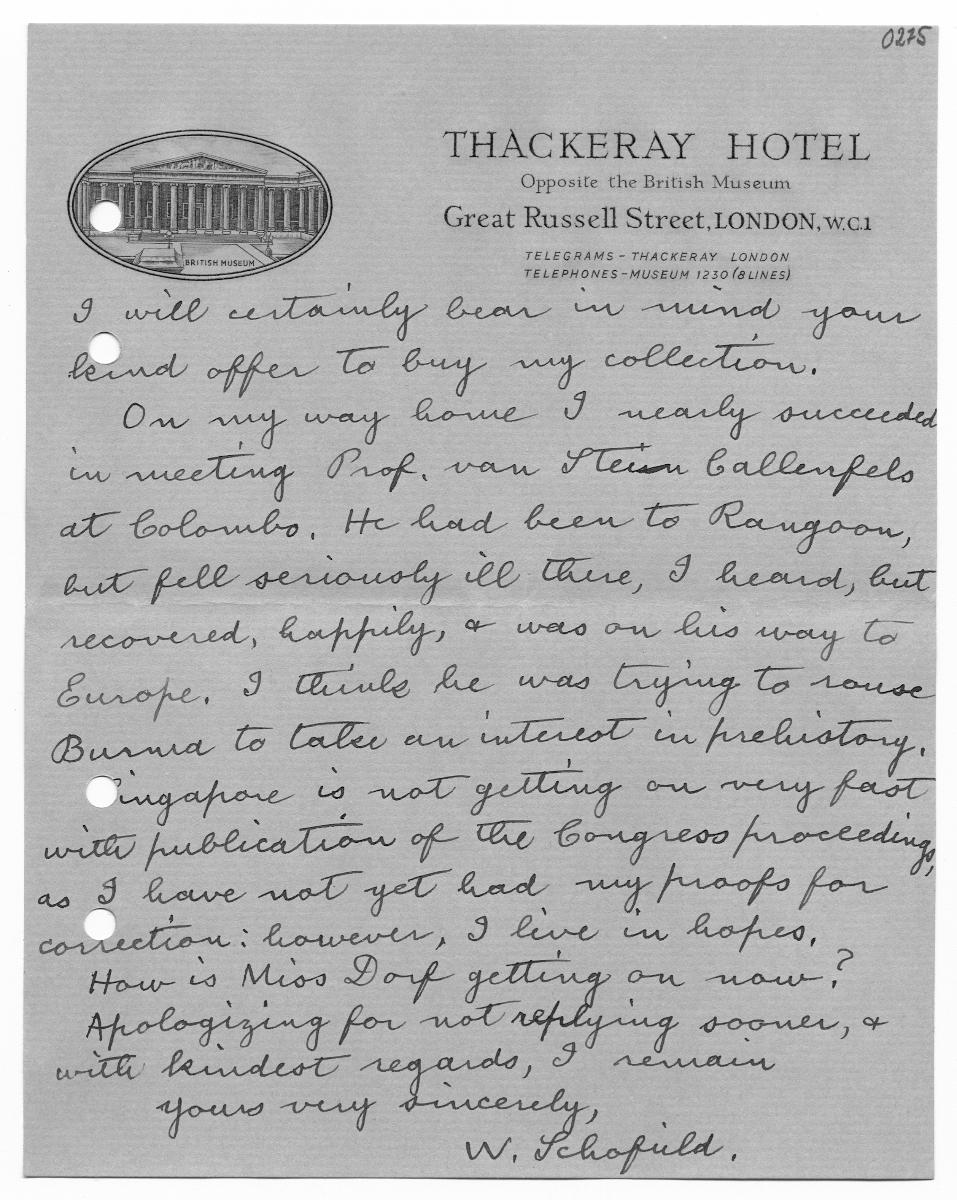 0275
THACKERAY HOTEL
Opposite the British Museum
Great Russell Street, LONDON, W.C.1
TELEGRAMS - THACKERAY LONDON
TELEPHONES - MUSEUM 1230 (8 LINES)
BRITISH MUSEUM
I will certainly bear in mind your
kind offer to buy my collection.
On my way home I nearly succeeded
in meeting Prof. van Stein Callenfels
at Colombo. He had been to Rangoon,
but fell seriously ill there, I heard, but
recovered, happily, & was on his way to
Europe. I think he was trying to rouse
Burma to take an interest in prehistory.
Singapore is not getting on very fast
with publication of the Congress proceedings,
as I have not yet had my proofs for
correction: however, I live in hopes.
How is Miss Dorf getting on now?
Apologizing for not replying sooner, &
with kindest regards, I remain
yours very sincerely,
W. Schofield.